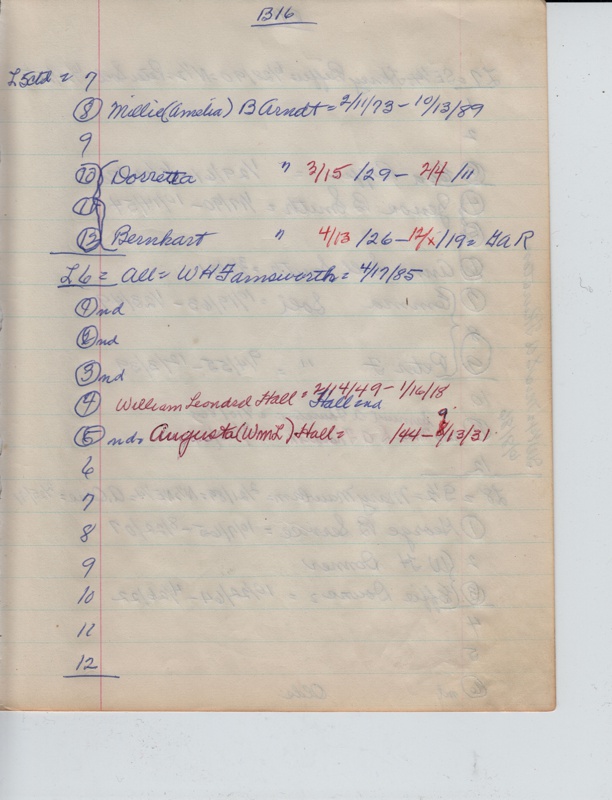 B16
L5ctd = 7
(8) Millie (Amelia) B Arndt = 2/11/73 - 10/13/89
9
(10) Dorretta " 3/15/29 - 2/4/11
(11)
(12) Bernhart " 4/13/26 - 12/x/19 = GAR
L6 = All = WH Farnsworth = 4/17/85
(1) nd
(2) nd
(3) nd
(4) William Leonard Hall = 2/14/49 - 1/16/18
Hall nd
(5) nd, Augusta (WmL) Hall = /44 - 9/13/31
6
7
8
9
10
11
12